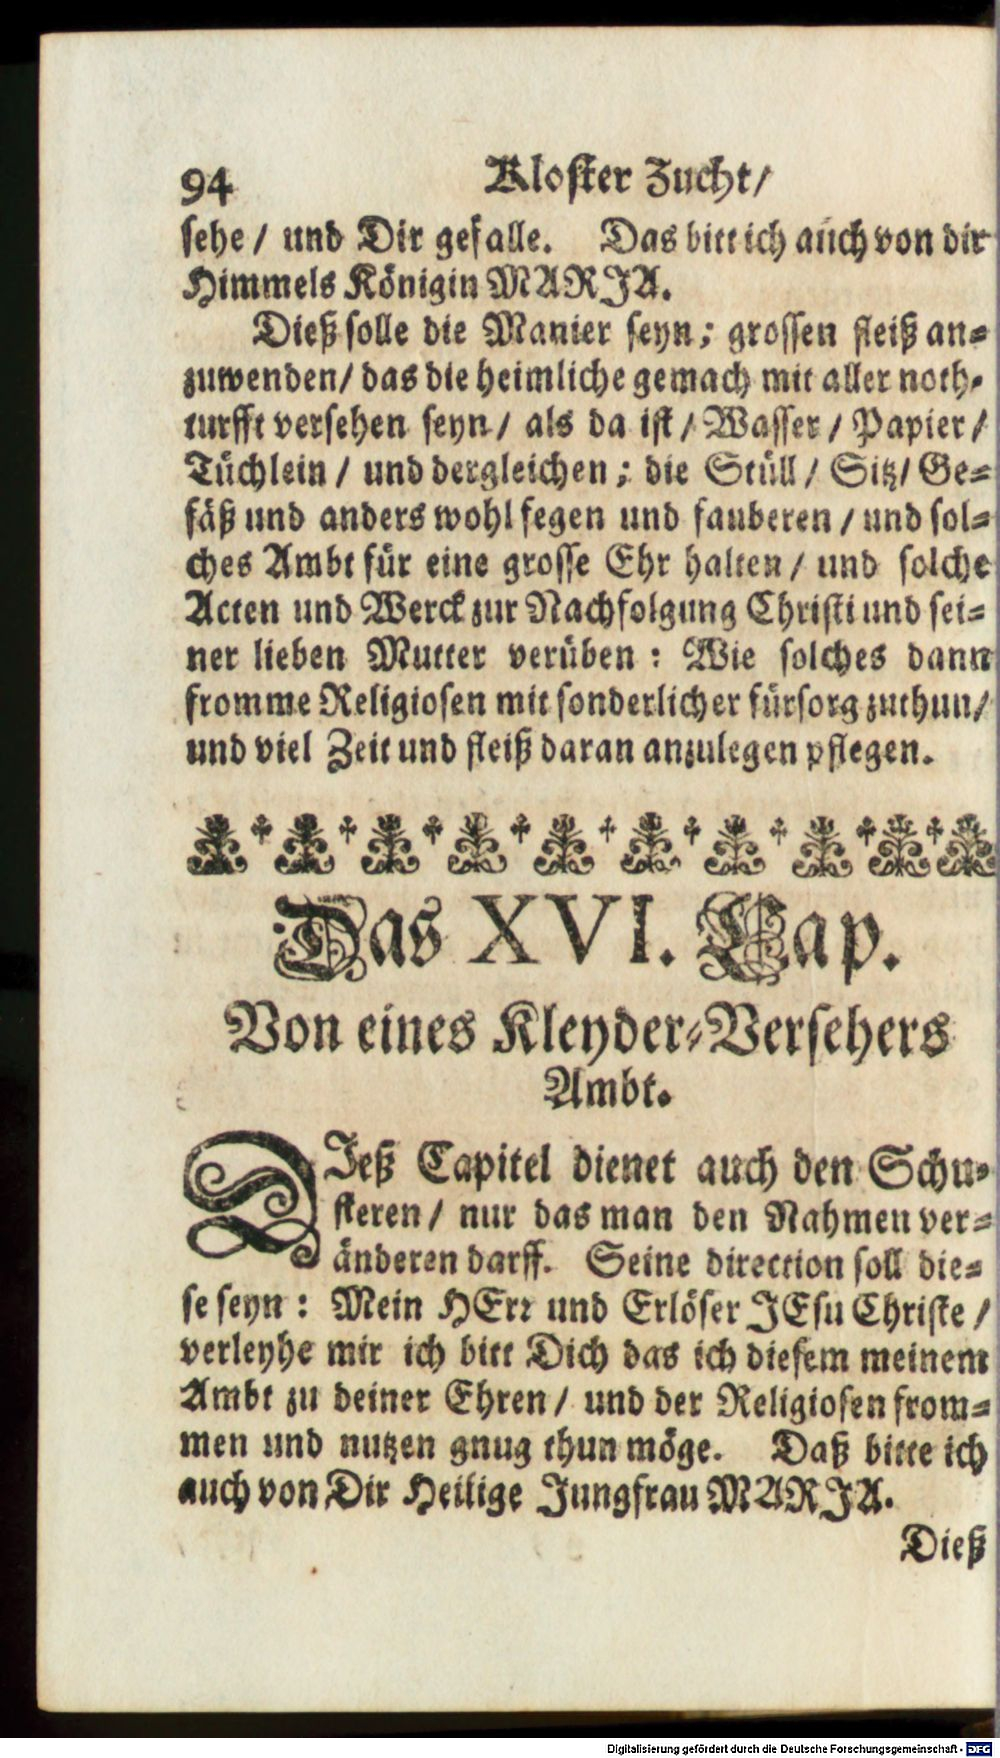 94 Kloster Zucht/
sehe / und Dir gefalle. Das bitt ich auch von dir
Himmels Königin MARJA.
Dieß solle die Manier seyn; grossen fleiß an-
zuwenden/ das die heimliche gemach mit aller noth-
turfft versehen seyn/ als da ist / Wasser / Papier /
Tüchlein / und dergleichen; die Stüll / Sitz/ Ge-
fäß und anders wohl fegen und sauberen / und sol-
ches Ambt für eine grosse Ehr halten / und solche
Acten und Werck zur Nachfolgung Christi und sei-
ner lieben Mutter verüben : Wie solches dann
fromme Religiosen mit sonderlicher fürsorg zuthun/
und viel Zeit und fleiß daran anzulegen pflegen.
Das XVI. Cap.
Von eines Kleyder-Versehers
Ambt.
DJeß Capitel dienet auch den Schu-
steren / nur das man den Nahmen ver-
änderen darff. Seine direction soll die-
se seyn : Mein HErr und Erlöser JEsu Christe /
verleyhe mir ich bitt Dich das ich diesem meinem
Ambt zu deiner Ehren / und der Religiosen from-
men und nutzen gnug thun möge. Daß bitte ich
auch von Dir Heilige Jungfrau MARJA.
Dieß
Digitalisierung gefördert durch die Deutsche Forschungsgemeinschaft - DFG